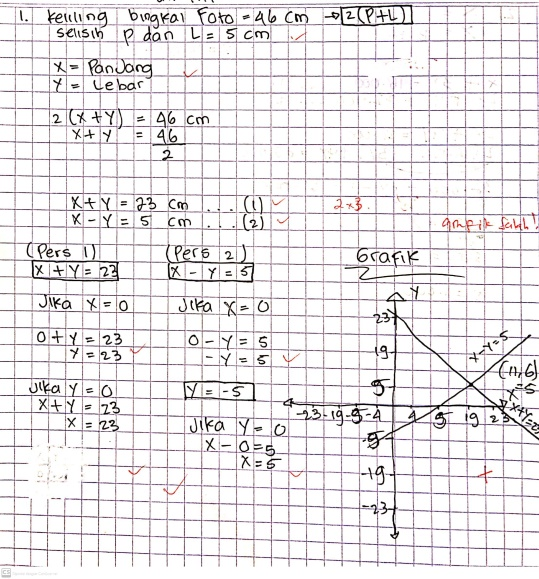 1. Keliling bingkai Foto = 46 cm → 2(P+L)
selisih P dan L = 5 cm
X = Panjang
Y = Lebar
2 (X + Y) = 46 cm
X + Y = 46
2
X + Y = 23 cm ... (1)
X - Y = 5 cm ... (2)
2x3
grafik salah!
(Pers 1)
X + Y = 23
Jika X = 0
0 + Y = 23
Y = 23
Jika Y = 0
X + Y = 23
X = 23
(Pers 2)
X - Y = 5
Jika X = 0
0 - Y = 5
- Y = 5
Y = -5
Jika Y = 0
X - 0 = 5
X = 5
Grafik
Y
23
19
5
X-Y=5
(11,6)
=5
X
-23 -19 -5 -4 4 5 19 23
X+Y=23
-5
-19
-23
CS